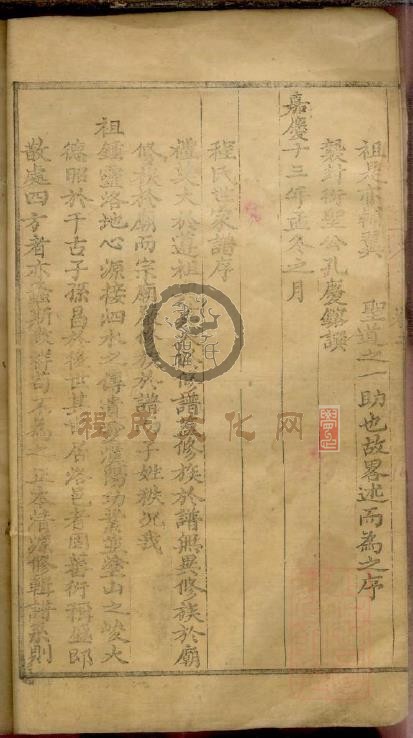 祖是亦羽翼　聖道之一助也故畧述而為之序
襲封衍聖公孔慶鎔譔
嘉慶十三年孟冬之月
程氏世家譜序
禮莫大於尊祖 修譜蓋修族於譜無異修族於廟
修族於廟而宗廟 修族於譜而子姓秩況我
祖鍾靈洛地心源接泗水之傳 功業並塗山之峻大
德昭於千古子孫昌於後世其 居洛邑者固蕃衍稱盛即
散處四方者亦螽斯 苟不為之正本清源修輯譜系則
程氏文化网